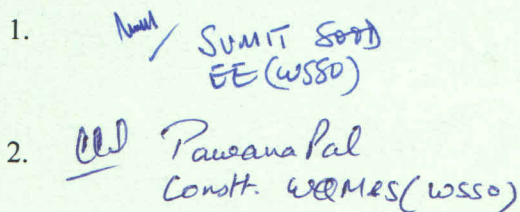 1. SUMIT SOOD
EE (WSSO)
2. Pawana Pal
Constt. WQM&S (WSSO)